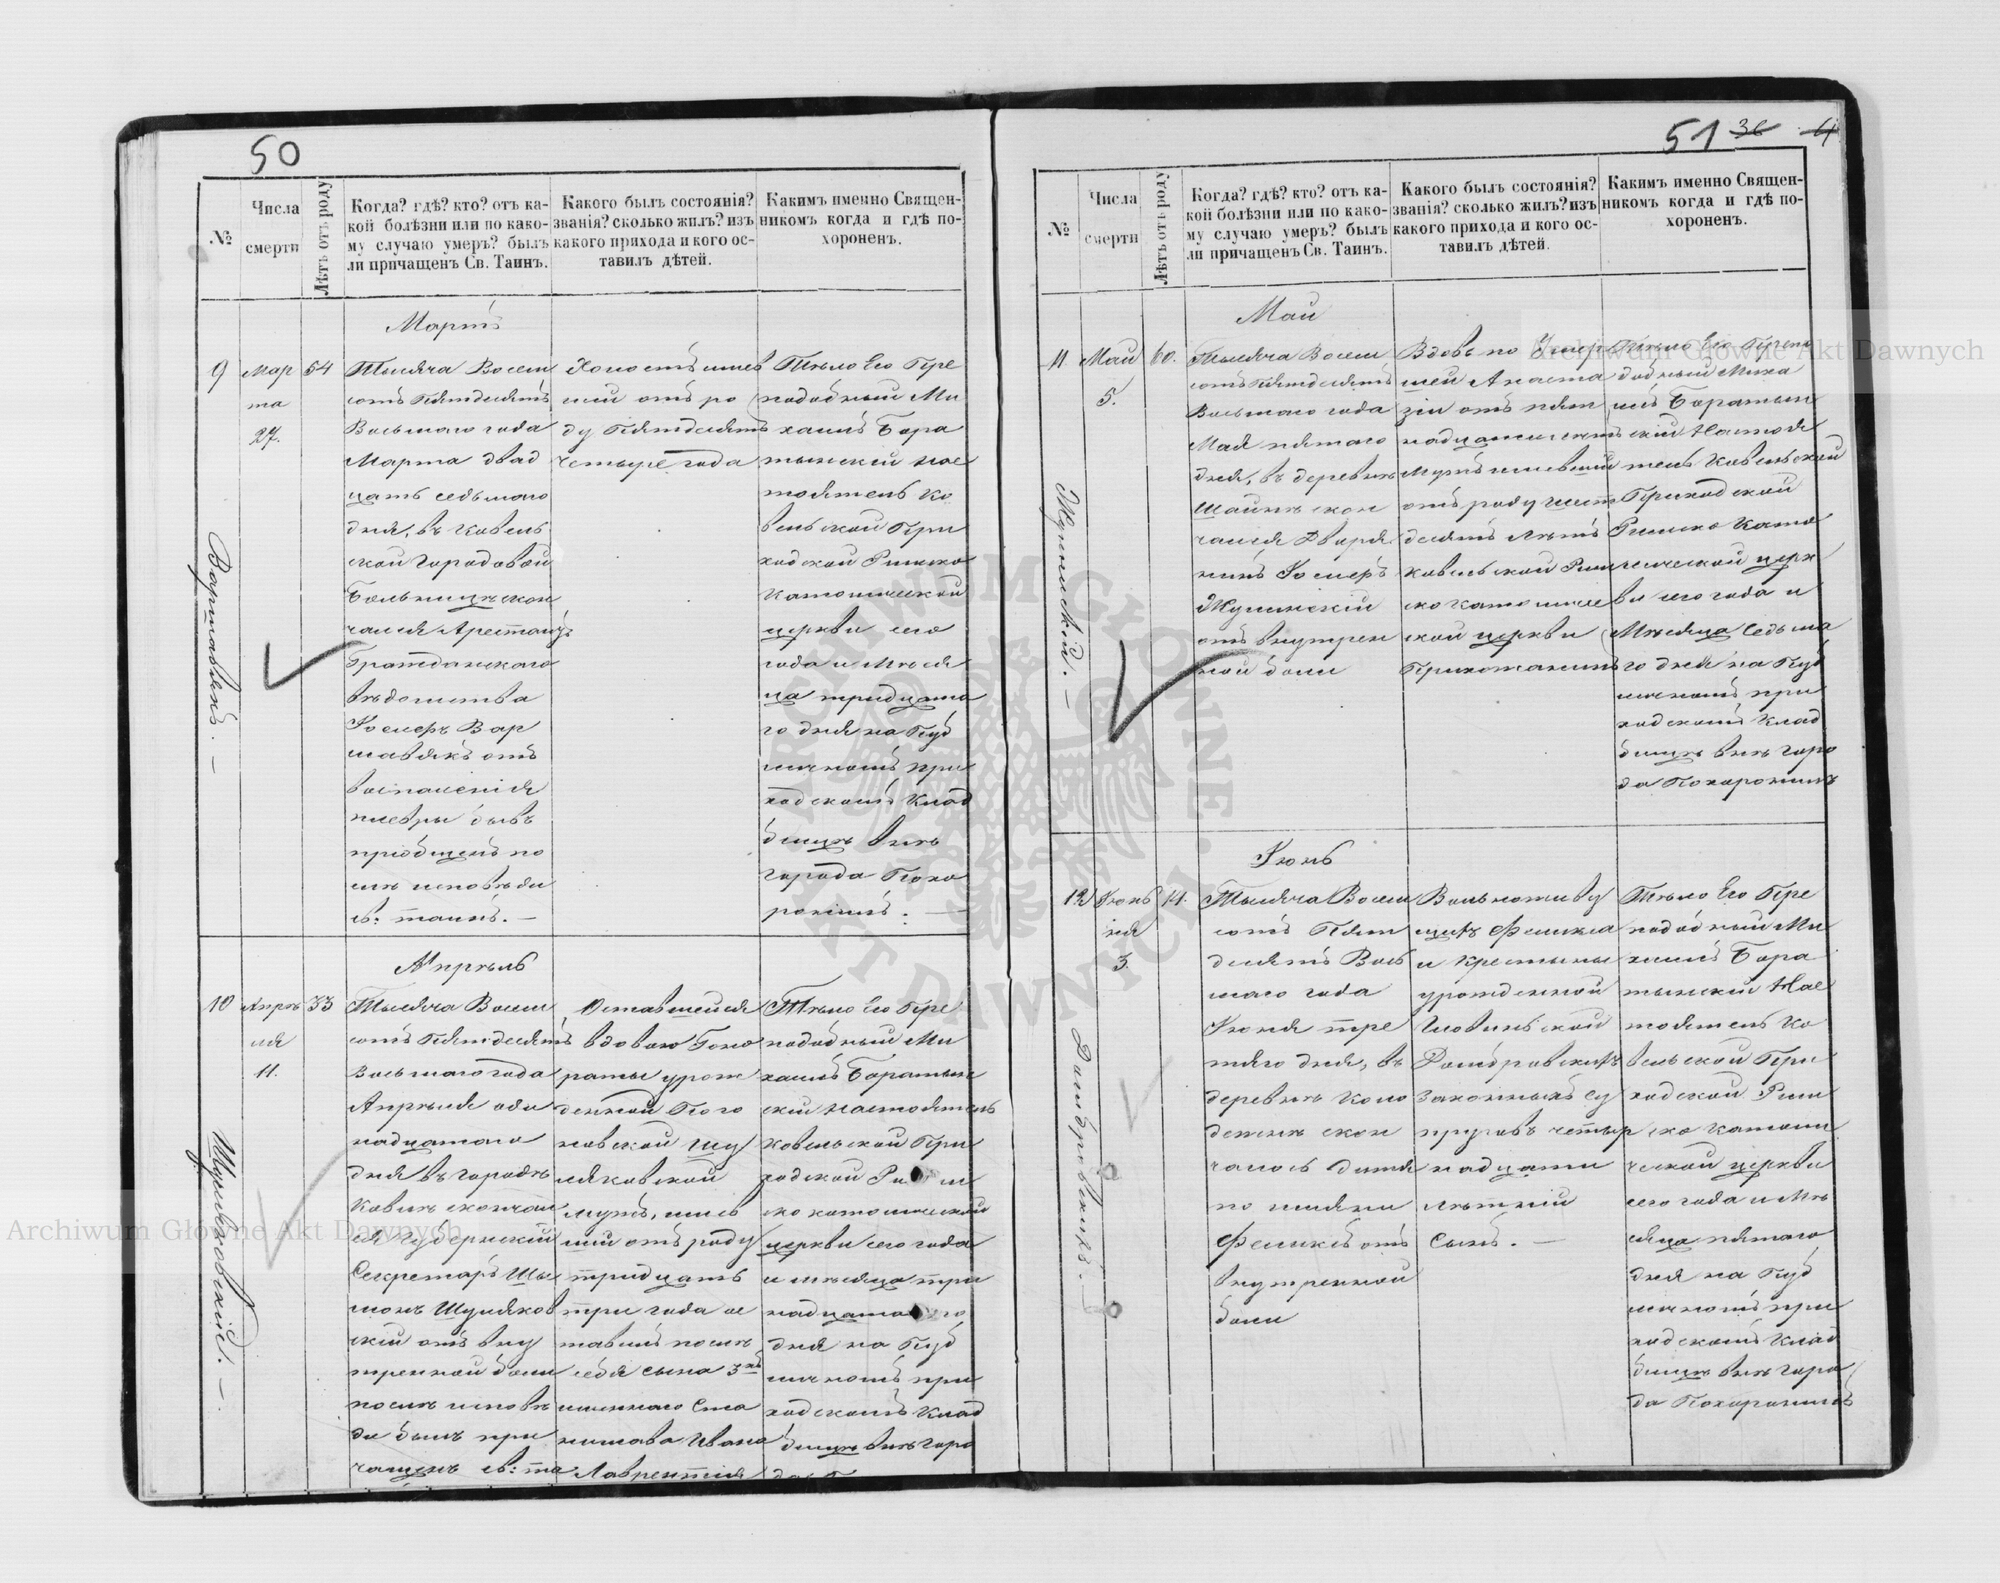 50
№
Числа
смерти
Лѣтъ отъ роду
Когда? гдѣ? кто? отъ ка-
кой болѣзни или по како-
му случаю умеръ? былъ
ли причащенъ Св. Таинъ.
Какого былъ состоянія?
званія? сколько жилъ? изъ
какого прихода и кого ос-
тавилъ дѣтей.
Какимъ именно Священ-
никомъ когда и гдѣ по-
хороненъ.
Мартъ
9
Мар
та
27.
54
Тысяча Восем
сотъ Пятдесятъ
Восьмаго года
Марта двад
цать седьмаго
дня, въ Ковель
ской Городовой
Больницѣ скон
чался Арестантъ
Гражданскаго
вѣдомства
Іосифъ Вар
шавякъ отъ
воспаленія
плевры бывъ
пріобщенъ по
слѣ исповѣди
св: таинъ. —
Холостъ имев
шій отъ ро
ду Пятдесятъ
четыре года
Тѣло Его Пре
подобный Ми
хаилъ Бора
тынскій Нас
тоятель Ко
вельской При
ходской Римско
Католической
церкви сего
года и Мѣся
ца тридцата
го дня на Пуб
личномъ при
ходскомъ Клад
бищѣ внѣ
города Похо
ронилъ. —
Варшавякъ. —
Апрѣль
10
Апрѣ
ля
11.
33
Тысяча Восем
сотъ Пятдесятъ
Восьмаго года
Апрѣля оди
надцатаго
дня въ городѣ
Ковлѣ скончал
ся Губернскій
Секретарь Шы
монъ Шуляков
скій отъ вну
тренной боли
послѣ исповѣ
ди былъ при
чащенъ св: та
Оставшейся
вдовою Гоно
раты урож
денной Пого
новской Шу
ляковской
мужъ, имев
шій отъ роду
тридцать
три года ос
тавилъ послѣ
себя сына 3хъ
именнаго Ста
нислава Ивана
Лаврентія
Тѣло Его Пре
подобный Ми
хаилъ Боратын
скій настоятель
Ковельской При
ходской Рим
ско католической
церкви сего года
и мѣсяца три
надцатаго
дня на Пуб
личномъ при
ходскомъ Клад
бищѣ внѣ горо
Шуляковскій. —
51 36
№
Числа
смерти
Лѣтъ отъ роду
Когда? гдѣ? кто? отъ ка-
кой болѣзни или по како-
му случаю умеръ? былъ
ли причащенъ Св. Таинъ.
Какого былъ состоянія?
званія? сколько жилъ? изъ
какого прихода и кого ос-
тавилъ дѣтей.
Какимъ именно Священ-
никомъ когда и гдѣ по-
хороненъ.
Май
11.
Май
5.
60.
Тысяча Восем
сотъ Пятдесятъ
Восьмаго года
Мая пятаго
дня, въ деревнѣ
скон
чался Дворя
нинъ Іосифъ
отъ внутрен
ной боли
Вдовъ по Умер
шей Анаста
зіи отъ пят
надцати лѣтъ
мужъ имевшій
отъ роду шест
десятъ лѣтъ
Ковельской Рим
ско католичес
кой церкви
Прихожанинъ
Тѣло Его Препо
добный Миха
илъ Боратын
скій Настоя
тель Ковельской
Приходской
Римско Като
лической церк
ви сего года и
Мѣсяца седьма
го дня на Пуб
личномъ при
ходскомъ Клад
бищѣ внѣ горо
да Похоронилъ
Іюнь
12
Іюнь
ня
3.
14.
Тысяча Восем
сотъ Пят
десятъ Вось
маго года
Іюня тре
тяго дня, въ
деревнѣ Коло
дежнѣ скон
чалось дитя
по имяни
Феликсъ отъ
внутренной
боли
Вольноживу
щихъ Феликса
и Крестыны
урожденной
Домбровскихъ
Законныхъ су
пруговъ четыр
надцати
лѣтній
Сынъ. —
Тѣло Его Пре
подобный Ми
хаилъ Бора
тынскій Нас
тоятель Ко
вельской При
ходской Рим
ско Католи
ческой церкви
сего года и Мѣ
сяца пятаго
дня на Пуб
личномъ при
ходскомъ Клад
бищѣ внѣ горо
да Похоронилъ
Домбровскихъ. —
Archiwum Główne Akt Dawnych
Archiwum Główne Akt Dawnych
ARCHIWUM GŁÓWNE AKT DAWNYCH